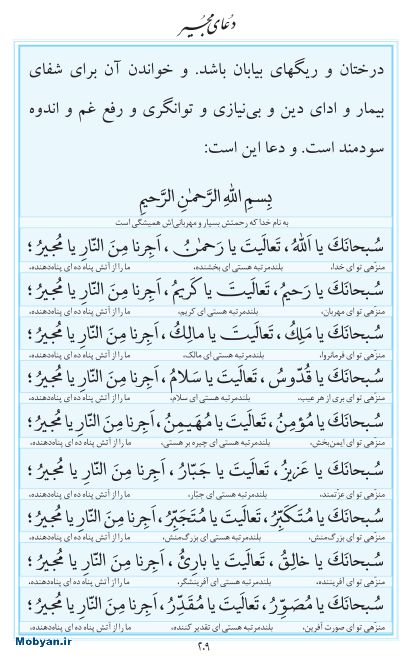 دعای مجیر
درختان و ریگهای بیابان باشد. و خواندن آن برای شفای
بیمار و ادای دین و بی‌نیازی و توانگری و رفع غم و اندوه
سودمند است. و دعا این است:
بِسمِ اللهِ الرَّحمٰنِ الرَّحیمِ
به نام خدا که رحمتش بسیار و مهربانی‌اش همیشگی است
سُبحانَكَ يا اَللهُ، تَعالَيتَ يا رَحمٰنُ، اَجِرنا مِنَ النّارِ يا مُجيرُ؛
منزّهی تو ای خدا، بلندمرتبه هستی ای بخشنده، ما را از آتش پناه ده ای پناه‌دهنده.
سُبحانَكَ يا رَحيمُ، تَعالَيتَ يا كَريمُ، اَجِرنا مِنَ النّارِ يا مُجيرُ؛
منزّهی تو ای مهربان، بلندمرتبه هستی ای کریم، ما را از آتش پناه ده ای پناه‌دهنده.
سُبحانَكَ يا مَلِكُ، تَعالَيتَ يا مالِكُ، اَجِرنا مِنَ النّارِ يا مُجيرُ؛
منزّهی تو ای فرمانروا، بلندمرتبه هستی ای مالک، ما را از آتش پناه ده ای پناه‌دهنده.
سُبحانَكَ يا قُدّوسُ، تَعالَيتَ يا سَلامُ، اَجِرنا مِنَ النّارِ يا مُجيرُ؛
منزّهی تو ای بری از هر عیب، بلندمرتبه هستی ای سلام، ما را از آتش پناه ده ای پناه‌دهنده.
سُبحانَكَ يا مُؤمِنُ، تَعالَيتَ يا مُهَيمِنُ، اَجِرنا مِنَ النّارِ يا مُجيرُ؛
منزّهی تو ای ایمن‌بخش، بلندمرتبه هستی ای چیره بر هستی، ما را از آتش پناه ده ای پناه‌دهنده.
سُبحانَكَ يا عَزيزُ، تَعالَيتَ يا جَبّارُ، اَجِرنا مِنَ النّارِ يا مُجيرُ؛
منزّهی تو ای عزّتمند، بلندمرتبه هستی ای جبّار، ما را از آتش پناه ده ای پناه‌دهنده.
سُبحانَكَ يا مُتَكَبِّرُ، تَعالَيتَ يا مُتَجَبِّرُ، اَجِرنا مِنَ النّارِ يا مُجيرُ؛
منزّهی تو ای بزرگ‌منش، بلندمرتبه هستی ای بزرگ‌منش، ما را از آتش پناه ده ای پناه‌دهنده.
سُبحانَكَ يا خالِقُ، تَعالَيتَ يا بارِئُ، اَجِرنا مِنَ النّارِ يا مُجيرُ؛
منزّهی تو ای آفریننده، بلندمرتبه هستی ای آفرینشگر، ما را از آتش پناه ده ای پناه‌دهنده.
سُبحانَكَ يا مُصَوِّرُ، تَعالَيتَ يا مُقَدِّرُ، اَجِرنا مِنَ النّارِ يا مُجيرُ؛
منزّهی تو ای صورت آفرین، بلندمرتبه هستی ای تقدیر کننده، ما را از آتش پناه ده ای پناه‌دهنده.
۲۰۹
Mobyan.ir